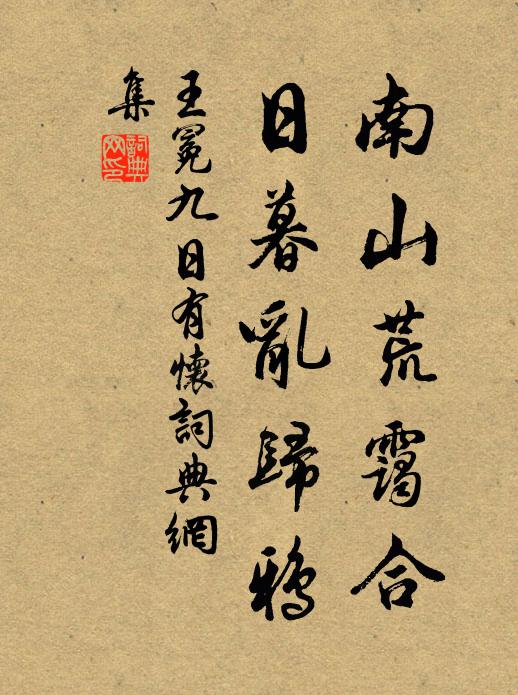 南山荒靄合
日暮亂歸鴉
王冕九日有懷詞典網
集
詞典
网印